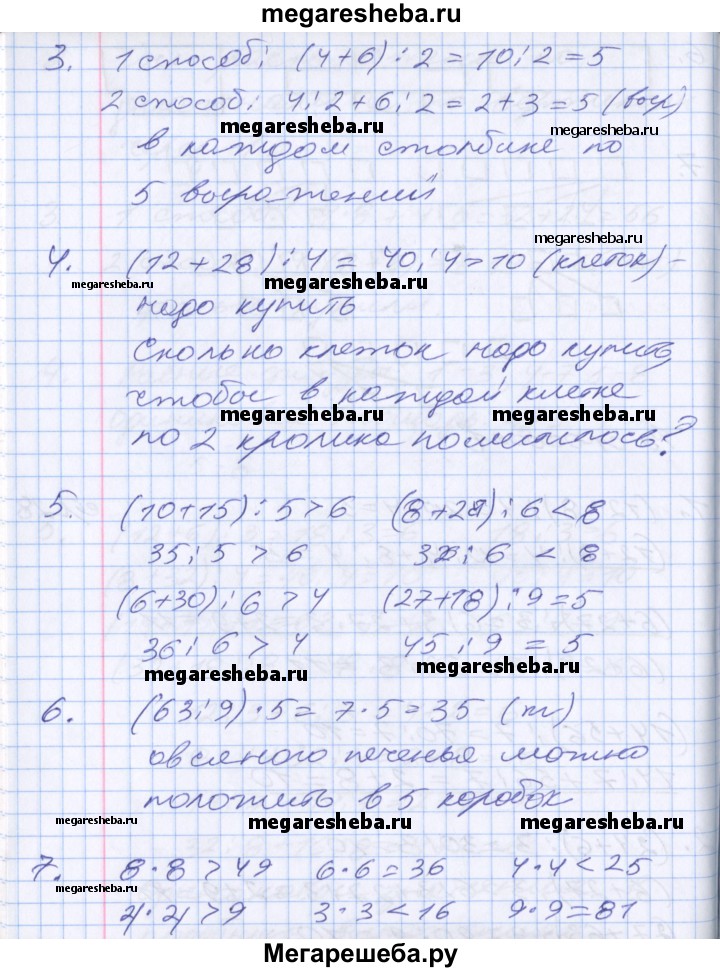 megaresheba.ru
3. 1 способ: (4+6):2=10:2=5
2 способ: 4:2+6:2=2+3=5 (выр)
megaresheba.ru megaresheba.ru
в каждом столбике по
5 выражений
megaresheba.ru
4. (12+28):4=40:4=10 (клеток) -
megaresheba.ru megaresheba.ru
надо купить
Сколько клеток надо купить,
чтобы в каждой клетке
megaresheba.ru megaresheba.ru
по 2 кролика поместилось?
5. (10+15):5>6 (8+28):6<8
35:5>6 :6<8
(6+30):6>4 (27+18):9=5
36:6>4 45:9=5
megaresheba.ru megaresheba.ru
6. (63:9)·5=7·5=35 (п)
овсяного печенья можно
положить в 5 коробок
megaresheba.ru megaresheba.ru megaresheba.ru
7. 8·8>49 6·6=36 4·4<25
megaresheba.ru
2·2>9 3·3<16 9·9=81
Мегарешеба.ру